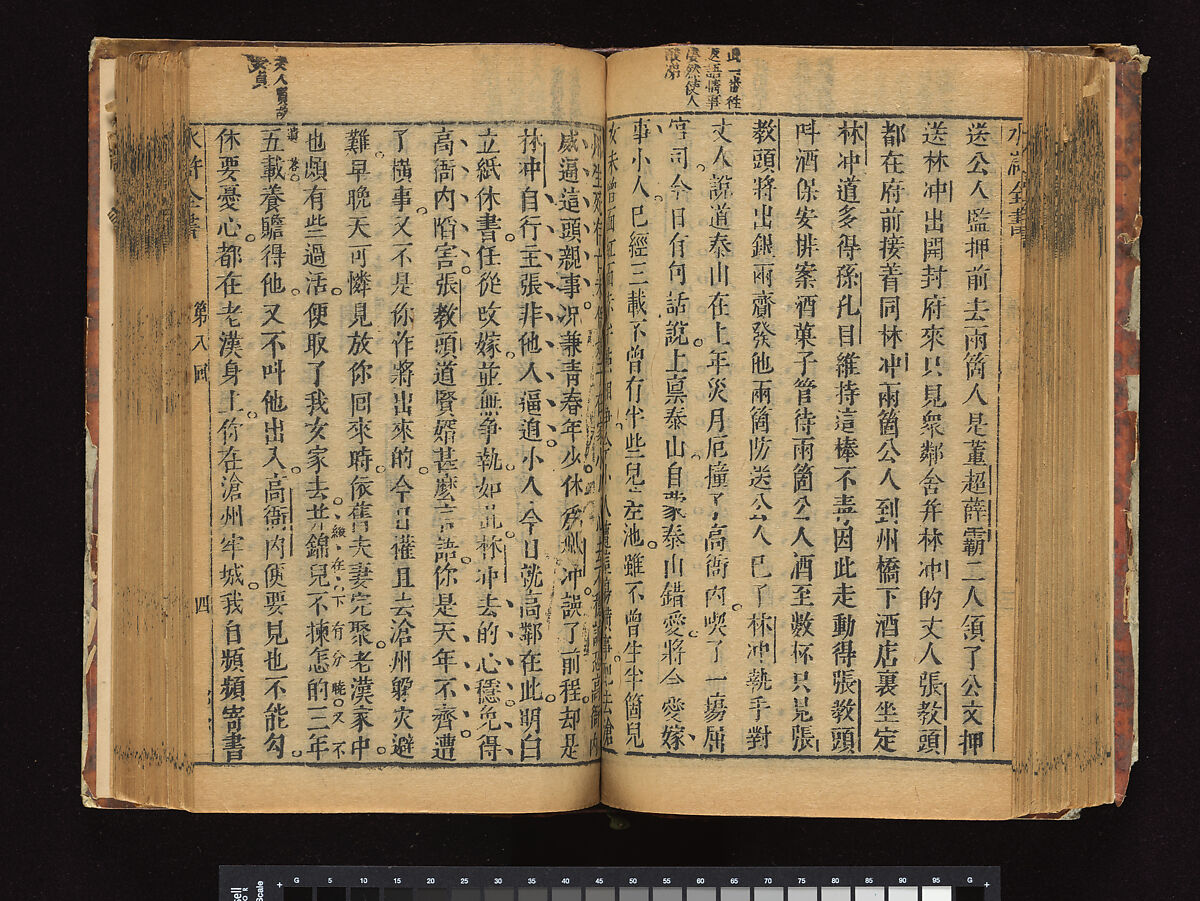 此一番往
返語情事
凄然使人
水滸全書
送公人監押前去兩箇人是董超薛霸二人領了公文押
送林冲出開封府來只見衆鄰舍并林冲的丈人張教頭
都在府前接着同林冲兩箇公人到州橋下酒店裏坐定
林冲道多得孫孔目維持這棒不毒因此走動得張教頭
呌酒保安排案酒菓子管待兩箇公人酒至數杯只見張
教頭將出銀兩齎發他兩箇防送公人已了林冲執手對
丈人說道泰山在上年災月厄撞了高衙內喫了一塲屈
官司今日有句話說上禀泰山自蒙泰山錯愛將令愛嫁
事小人已經三載不曾有半些兒差池雖不曾生半箇兒
女未曾面紅面赤
威逼這頭親事況兼青春年少休爲林冲誤了前程却是
林冲自行主張非他人逼迫小人今日就高鄰在此明白
立紙休書任從改嫁並無爭執如此林冲去的心穩免得
高衙內陷害張教頭道賢婿甚麼言語你是天年不齊遭
了橫事又不是你作將出來的今日權且去滄州躱災避
難早晚天可憐見放你囘來時依舊夫妻完聚老漢家中
也頗有些過活便取了我女家去并錦兒不揀怎的三年
五載養贍得他又不呌他出入高衙內便要見也不能勾
休要憂心都在老漢身上你在滄州牢城我自頻頻寄書
水滸全書 第八囘 四